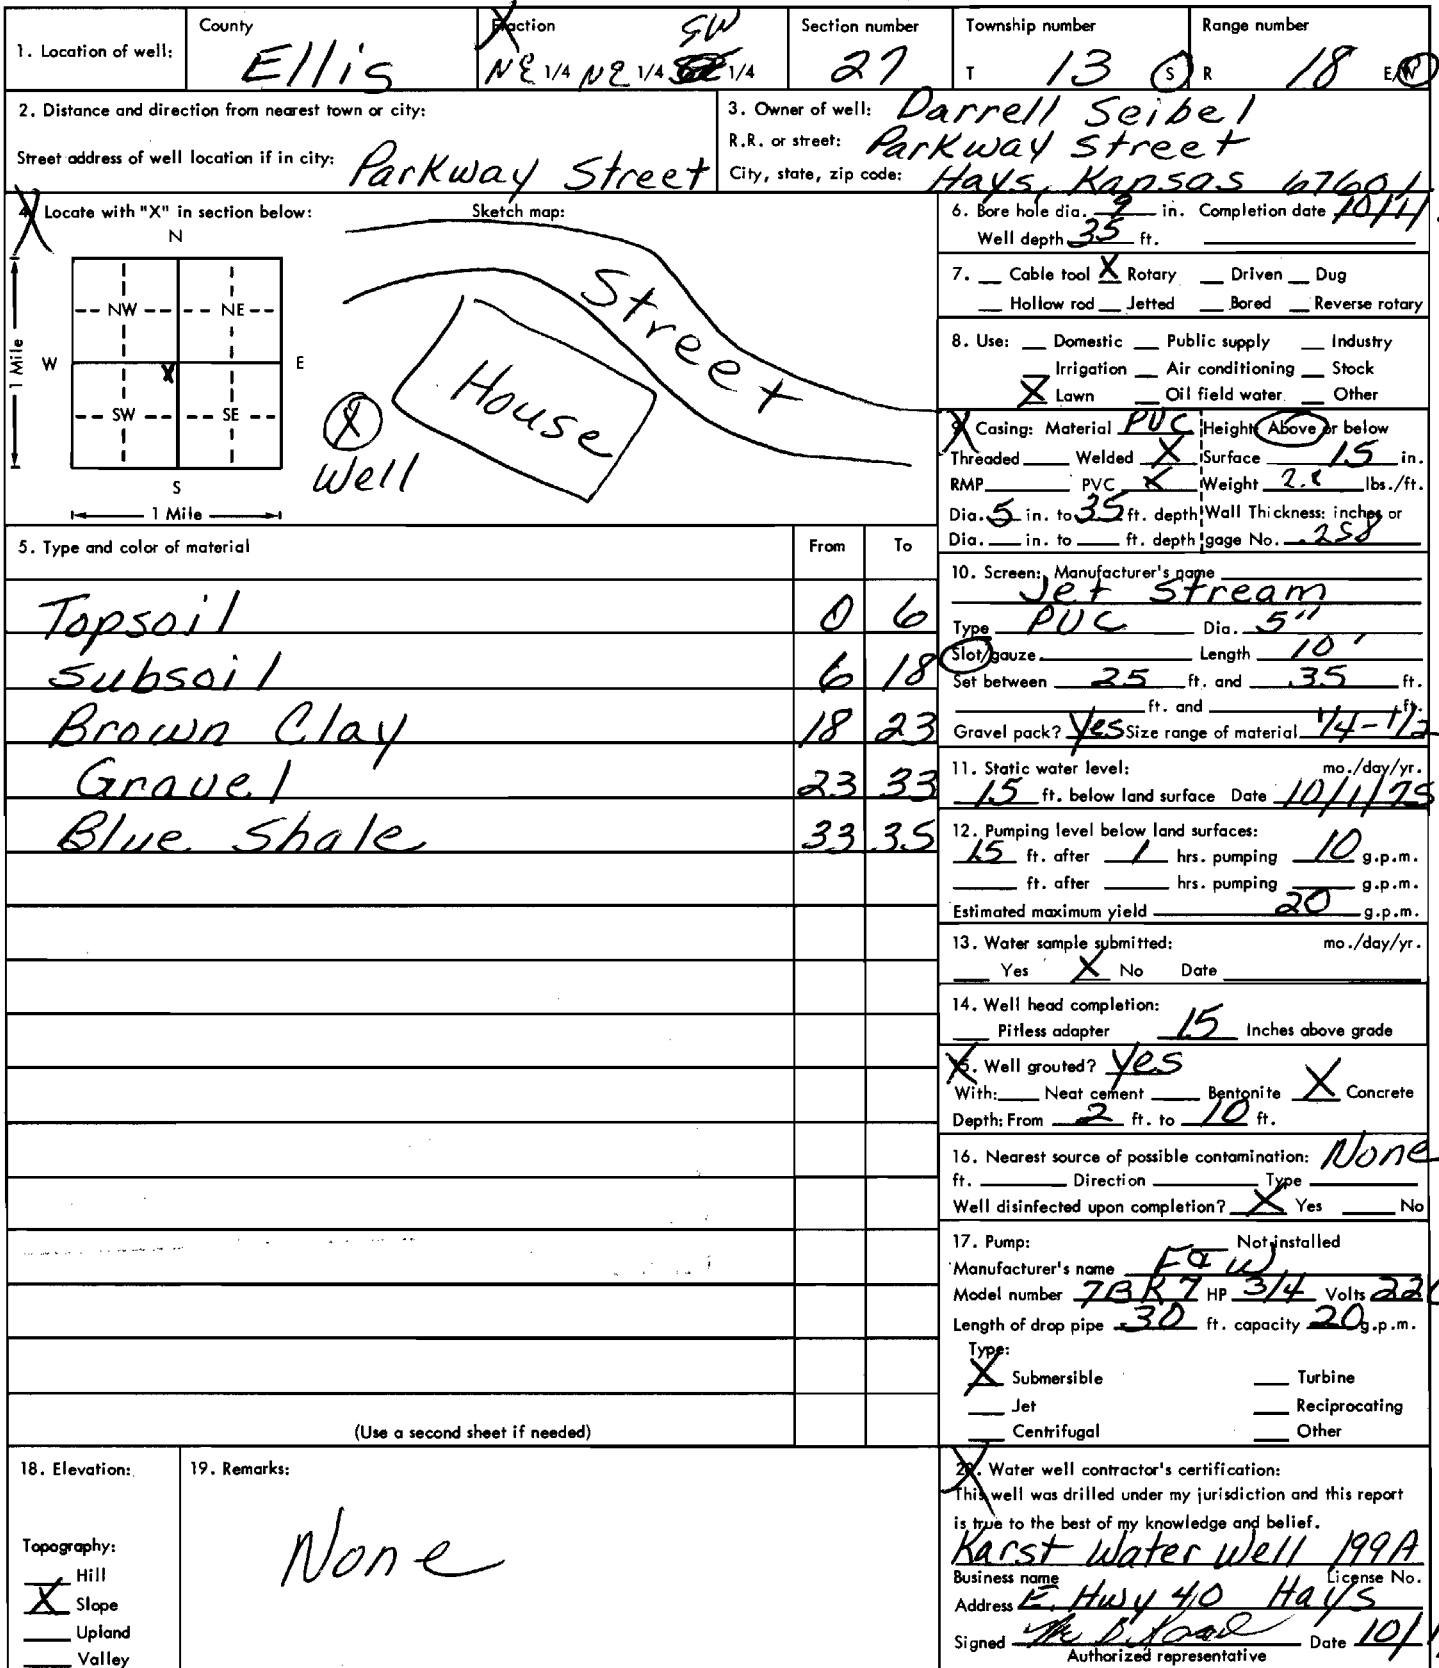 1. Location of well:
County
Ellis
Fraction
NE 1/4 NE 1/4 SW 1/4
Section number
27
Township number
T 13 S
Range number
R 18 E/W
2. Distance and direction from nearest town or city:
Street address of well location if in city: Parkway Street
3. Owner of well: Darrell Seibel
R.R. or street: Parkway Street
City, state, zip code: Hays, Kansas 67601
4. Locate with "X" in section below:
Sketch map:
N
NW NE
W E
X
SW SE
S
1 Mile
1 Mile
Street
House
X
Well
5. Type and color of material From To
Topsoil 0 6
Subsoil 6 18
Brown Clay 18 23
Gravel 23 33
Blue Shale 33 35
(Use a second sheet if needed)
6. Bore hole dia. 9 in. Completion date 10/1/
Well depth 35 ft.
7. Cable tool X Rotary Driven Dug
Hollow rod Jetted Bored Reverse rotary
8. Use: Domestic Public supply Industry
Irrigation Air conditioning Stock
X Lawn Oil field water Other
9. Casing: Material PVC Height: Above or below
Threaded Welded X Surface 15 in.
RMP PVC X Weight 2.8 lbs./ft.
Dia. 5 in. to 35 ft. depth Wall Thickness: inches or
Dia. in. to ft. depth gage No. .258
10. Screen: Manufacturer's name
Jet Stream
Type PVC Dia. 5"
Slot/gauze Length 10'
Set between 25 ft. and 35 ft.
ft. and ft.
Gravel pack? Yes Size range of material 1/4-1/2
11. Static water level: mo./day/yr.
15 ft. below land surface Date 10/1/75
12. Pumping level below land surfaces:
15 ft. after 1 hrs. pumping 10 g.p.m.
ft. after hrs. pumping g.p.m.
Estimated maximum yield 20 g.p.m.
13. Water sample submitted: mo./day/yr.
Yes X No Date
14. Well head completion:
Pitless adapter 15 Inches above grade
15. Well grouted? Yes
With: Neat cement Bentonite X Concrete
Depth: From 2 ft. to 10 ft.
16. Nearest source of possible contamination: None
ft. Direction Type
Well disinfected upon completion? X Yes No
17. Pump: Not installed
Manufacturer's name F & W
Model number 7BK7 HP 3/4 Volts 220
Length of drop pipe 30 ft. capacity 20 g.p.m.
Type:
X Submersible Turbine
Jet Reciprocating
Centrifugal Other
18. Elevation:
Topography:
Hill
X Slope
Upland
Valley
19. Remarks:
None
20. Water well contractor's certification:
This well was drilled under my jurisdiction and this report
is true to the best of my knowledge and belief.
Karst Water Well 199A
Business name License No.
Address E. Hwy 40 Hays
Signed Date 10/1
Authorized representative